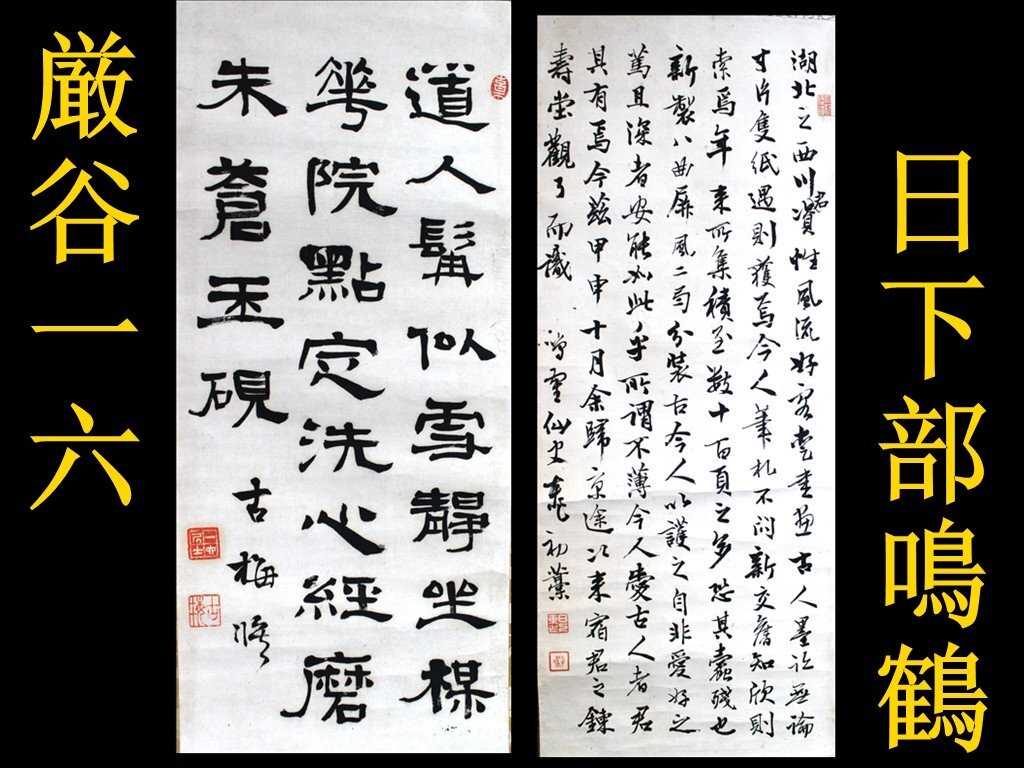 日下部鳴鶴
湖北之西川君資性風流好客書画古人墨迹無論
寸片隻紙遇則獲焉今人筆札不問新交舊知欣則
索焉年来所集積至数十百頁之多恐其蠹残也
新製八曲屏風二局分装古今人以護之自非愛好之
篤且深者安能如此乎所謂不薄今人愛古人者君
具有焉今茲甲申十月余歸京途次来宿君之錬
壽堂觀了而識 仙史
道人髯似雪静坐楳
華院點定洗心経磨
朱蒼玉硯 古梅脩
厳谷一六